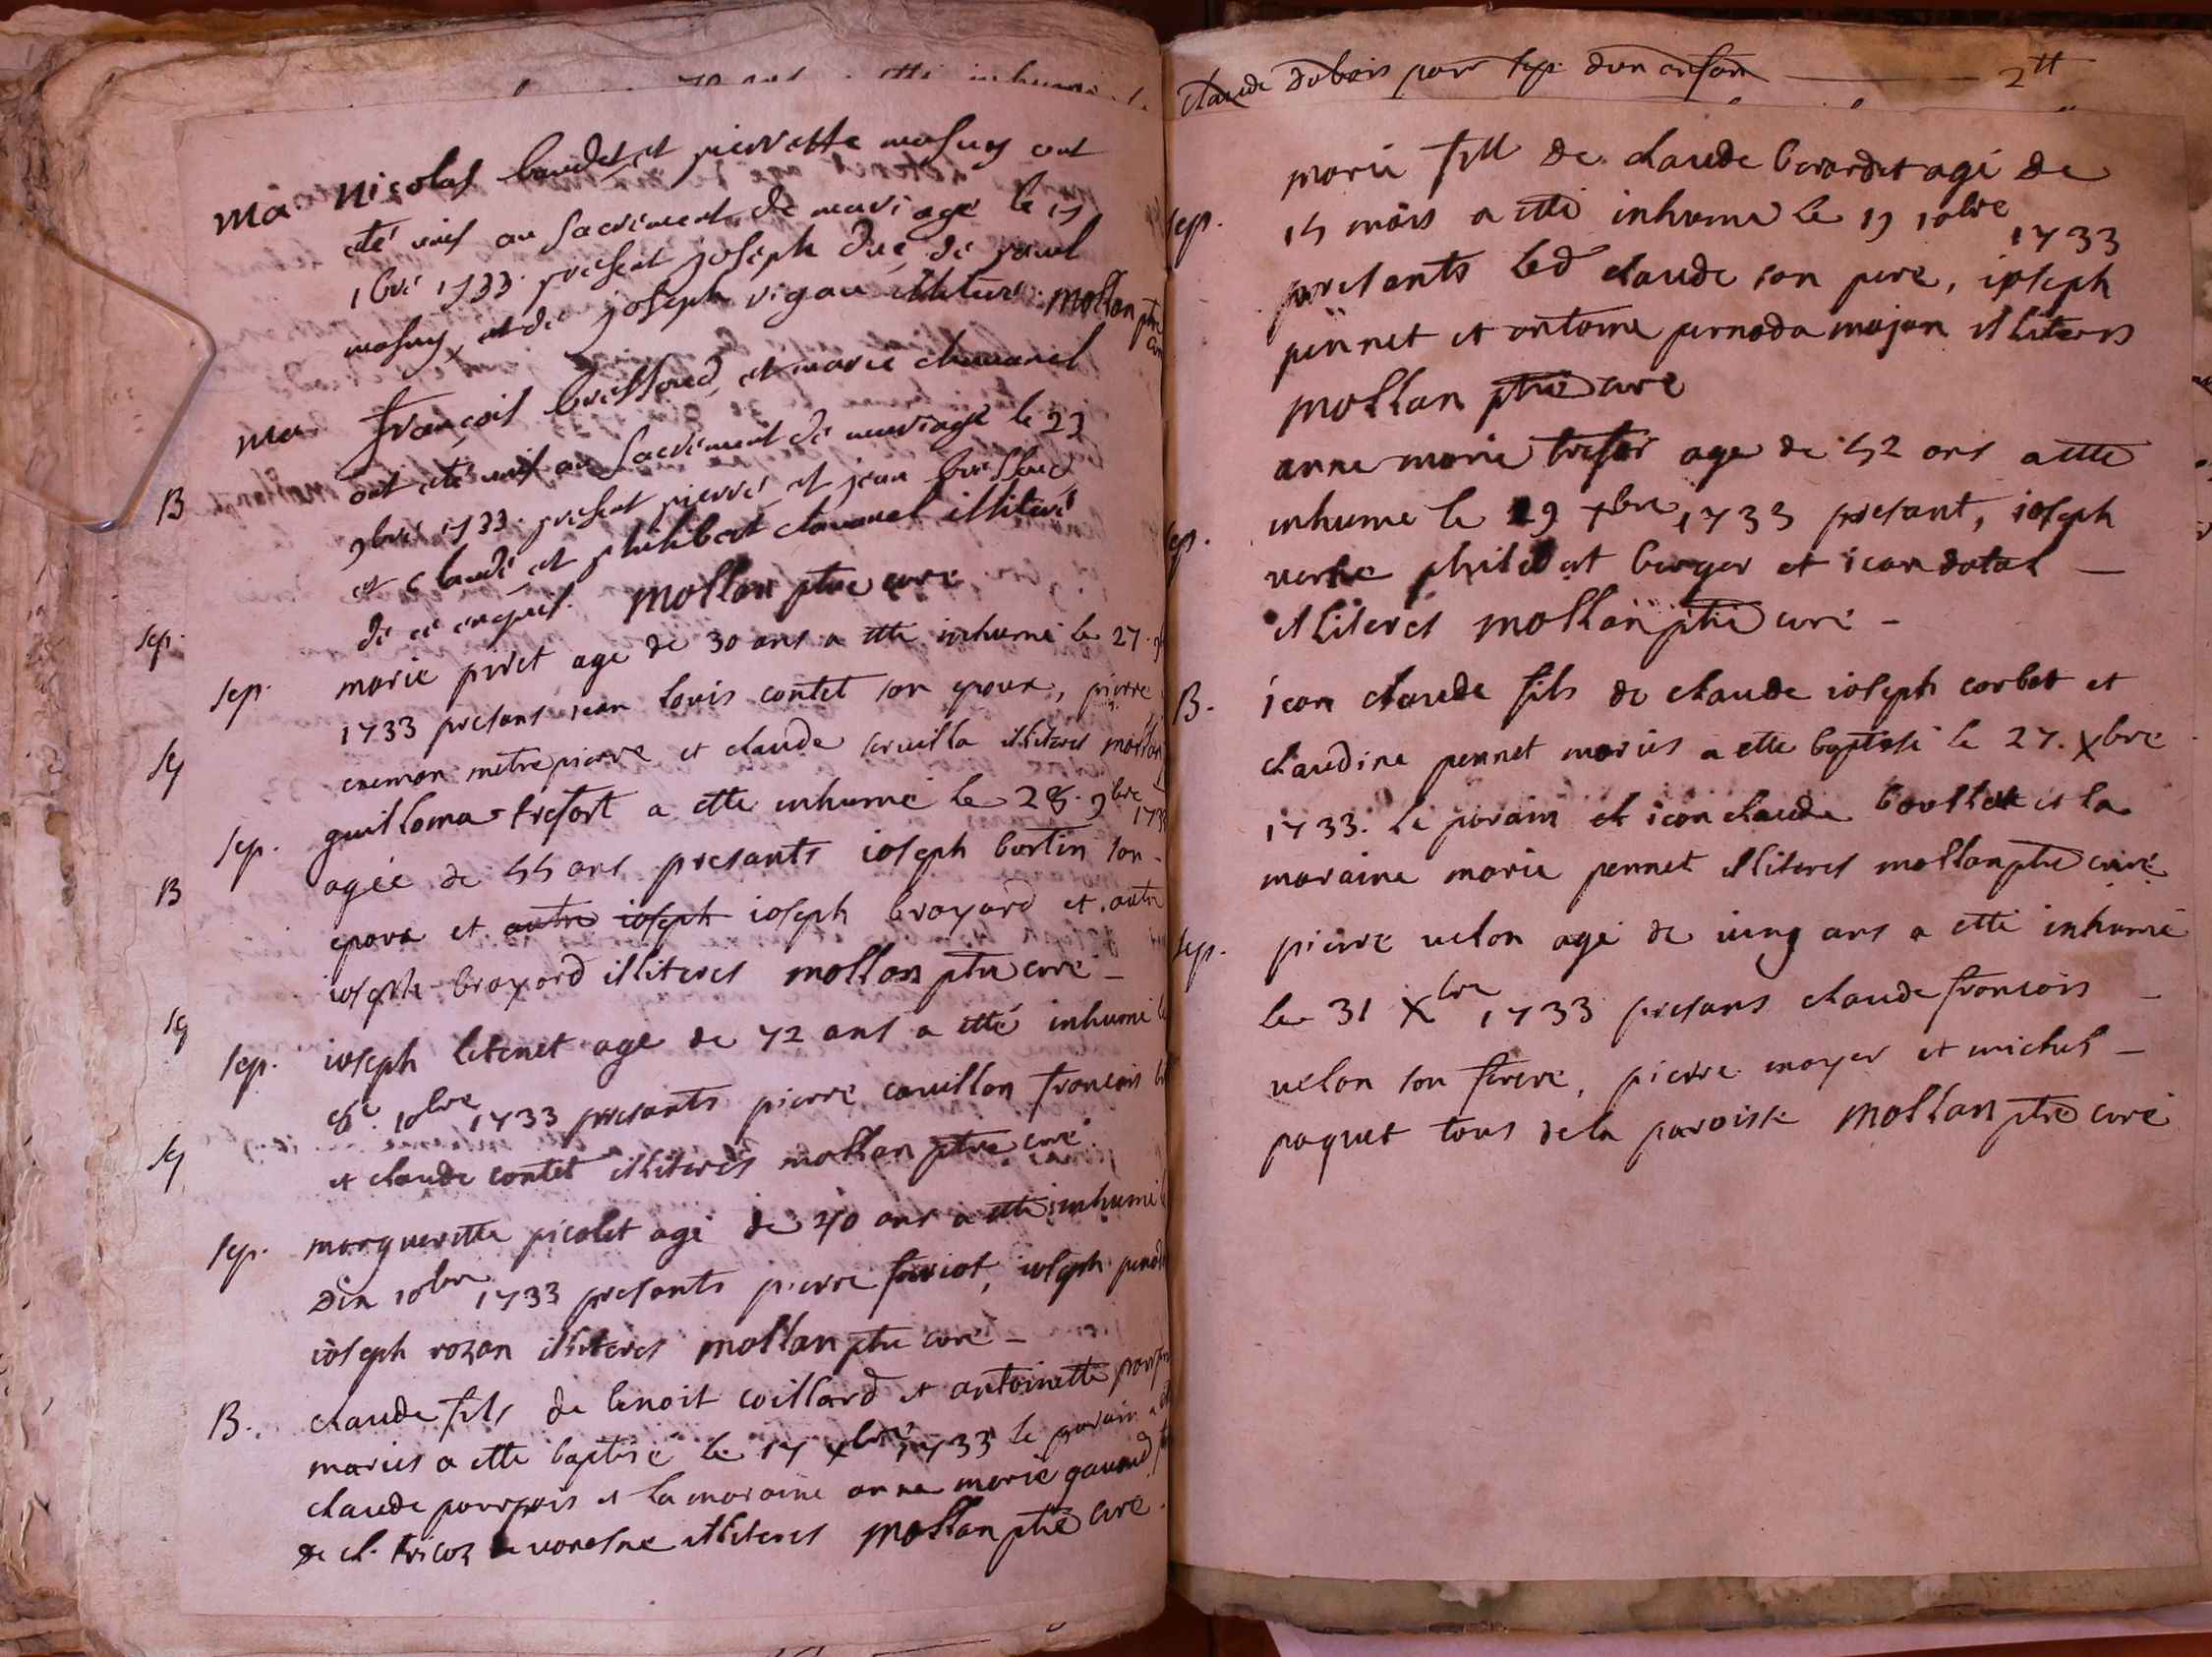 ma. nicolas baudet et pierrette masuy ont
été unis au sacrement de mariage le 17
9bre 1733. présent joseph
masuy et de joseph vigau illiteré. mollan ptre
ma. françois bressoud et marie chavanel
B
ont été unis au sacrement de mariage le 23
9bre 1733. present pierre et jean bressoud
et claude et philibert chavanel illiteré
de ce enquis. mollan ptre curé
sep.
sep. marie piret age de 30 ans a etté inhumé le 27.
1733 presans jean louis contet son epoux, pierre
metrepierre et claude illiteres mollan
sep
sep. guilloma trefort a ette inhumé le 28. 9bre 1733
agée de 55 ans presants ioseph bertin son
B
epoux et autre ioseph ioseph broyard et autre
ioseph broyard illiteres mollan ptre curé
sep
sep. ioseph letenet age de 72 ans a etté inhumé le
8e. 10bre 1733 presants pierre cavillon francois
et claude contet illiterés mollan ptre curé.
sep
sep. marguerette picolet agé de 40 ans a etté inhumé
dix 10bre 1733 presants pierre favriot, ioseph
ioseph rozan illiteres mollan ptre curé
B. claude fils de benoit coillard et antoinette
mariés a etté baptisé le 17 xbre 1733 le parain
claude pourprix et la maraine anne marie gavand
de illiteres mollan ptre curé
claude dubois pour sep. d'un enfan 2tt
marie fill de claude berardet agé de
sep. 15 mois a etté inhumé le 19 10bre 1733
presants led claude son pere, ioseph
pennet et antoine pernoda majan illiteres
mollan ptre curé
anne marie tresor age de 52 ans a etté
sep. inhumé le 29 xbre 1733 presant, ioseph
philibert berger et iean datal
illiteres mollan ptre curé
B. iean claude fils de claude ioseph corbet et
claudine pennet mariés a etté baptisé le 27. xbre
1733. le parain et iean claude boullet et la
maraine marie pennet illiteres mollan ptre curé
sep. pierre velon agé de ans a etté inhumé
le 31 xbre 1733 presans claude francois
velon son frere, pierre moyer et michel
paquet tous de la paroisse mollan ptre curé